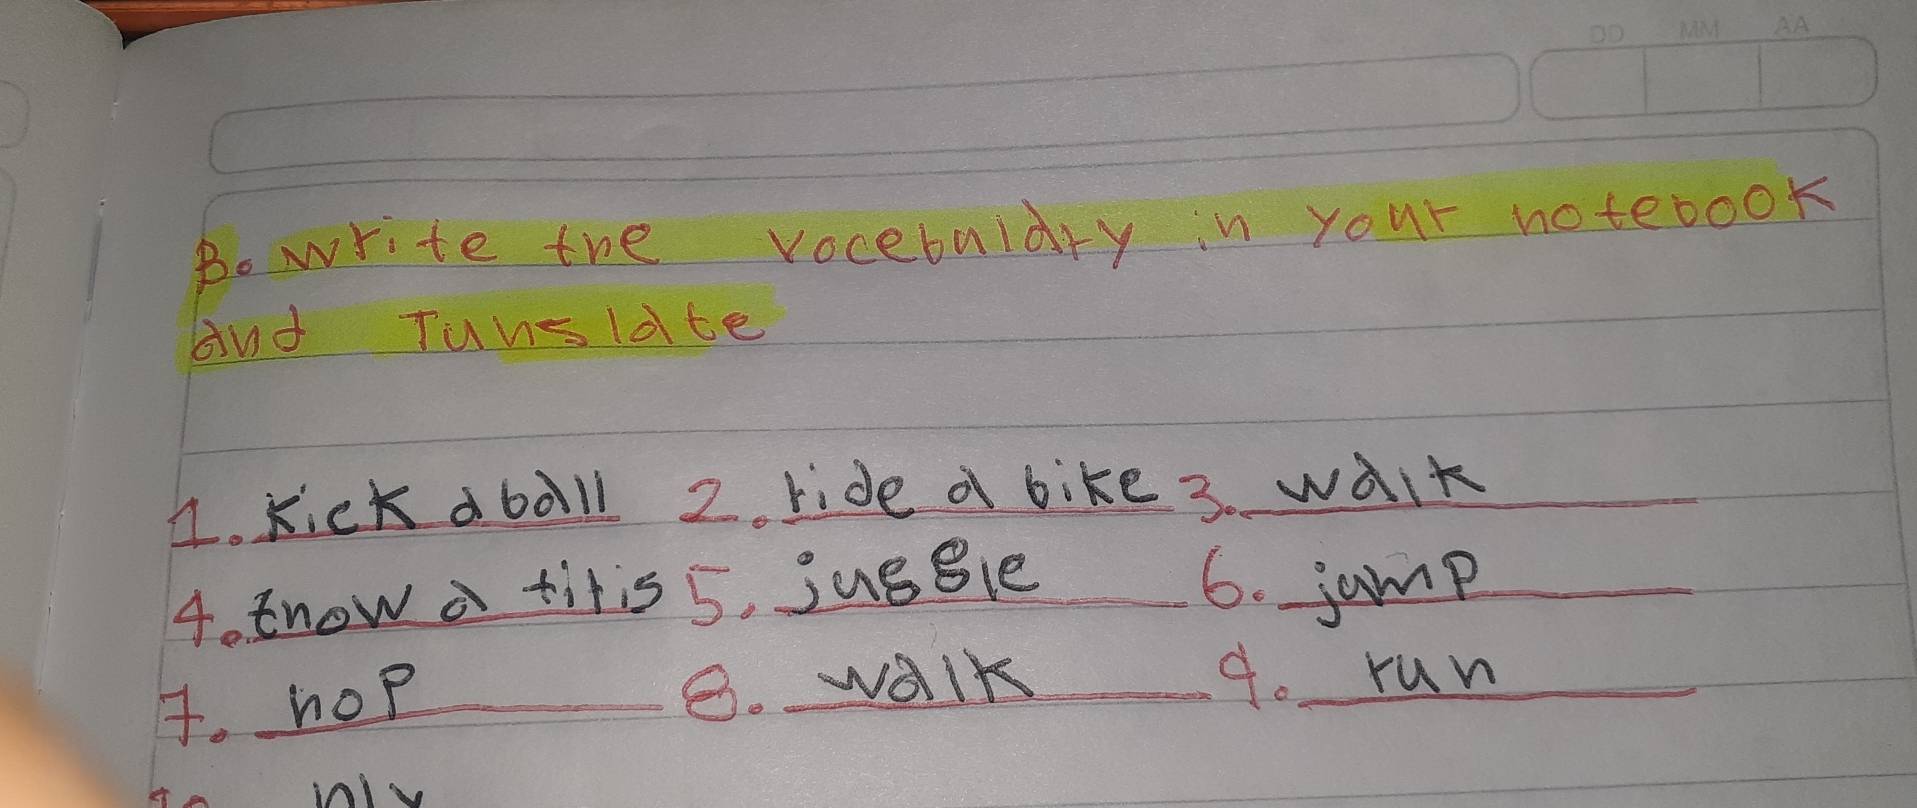 DD MM AA
B. Write the vocebulary in your notebook
and Tunslate
1. Kick a ball 2. ride a bike 3. walk
4. thow a firis 5. juggle 6. jump
7. hop 8. walk 9. run